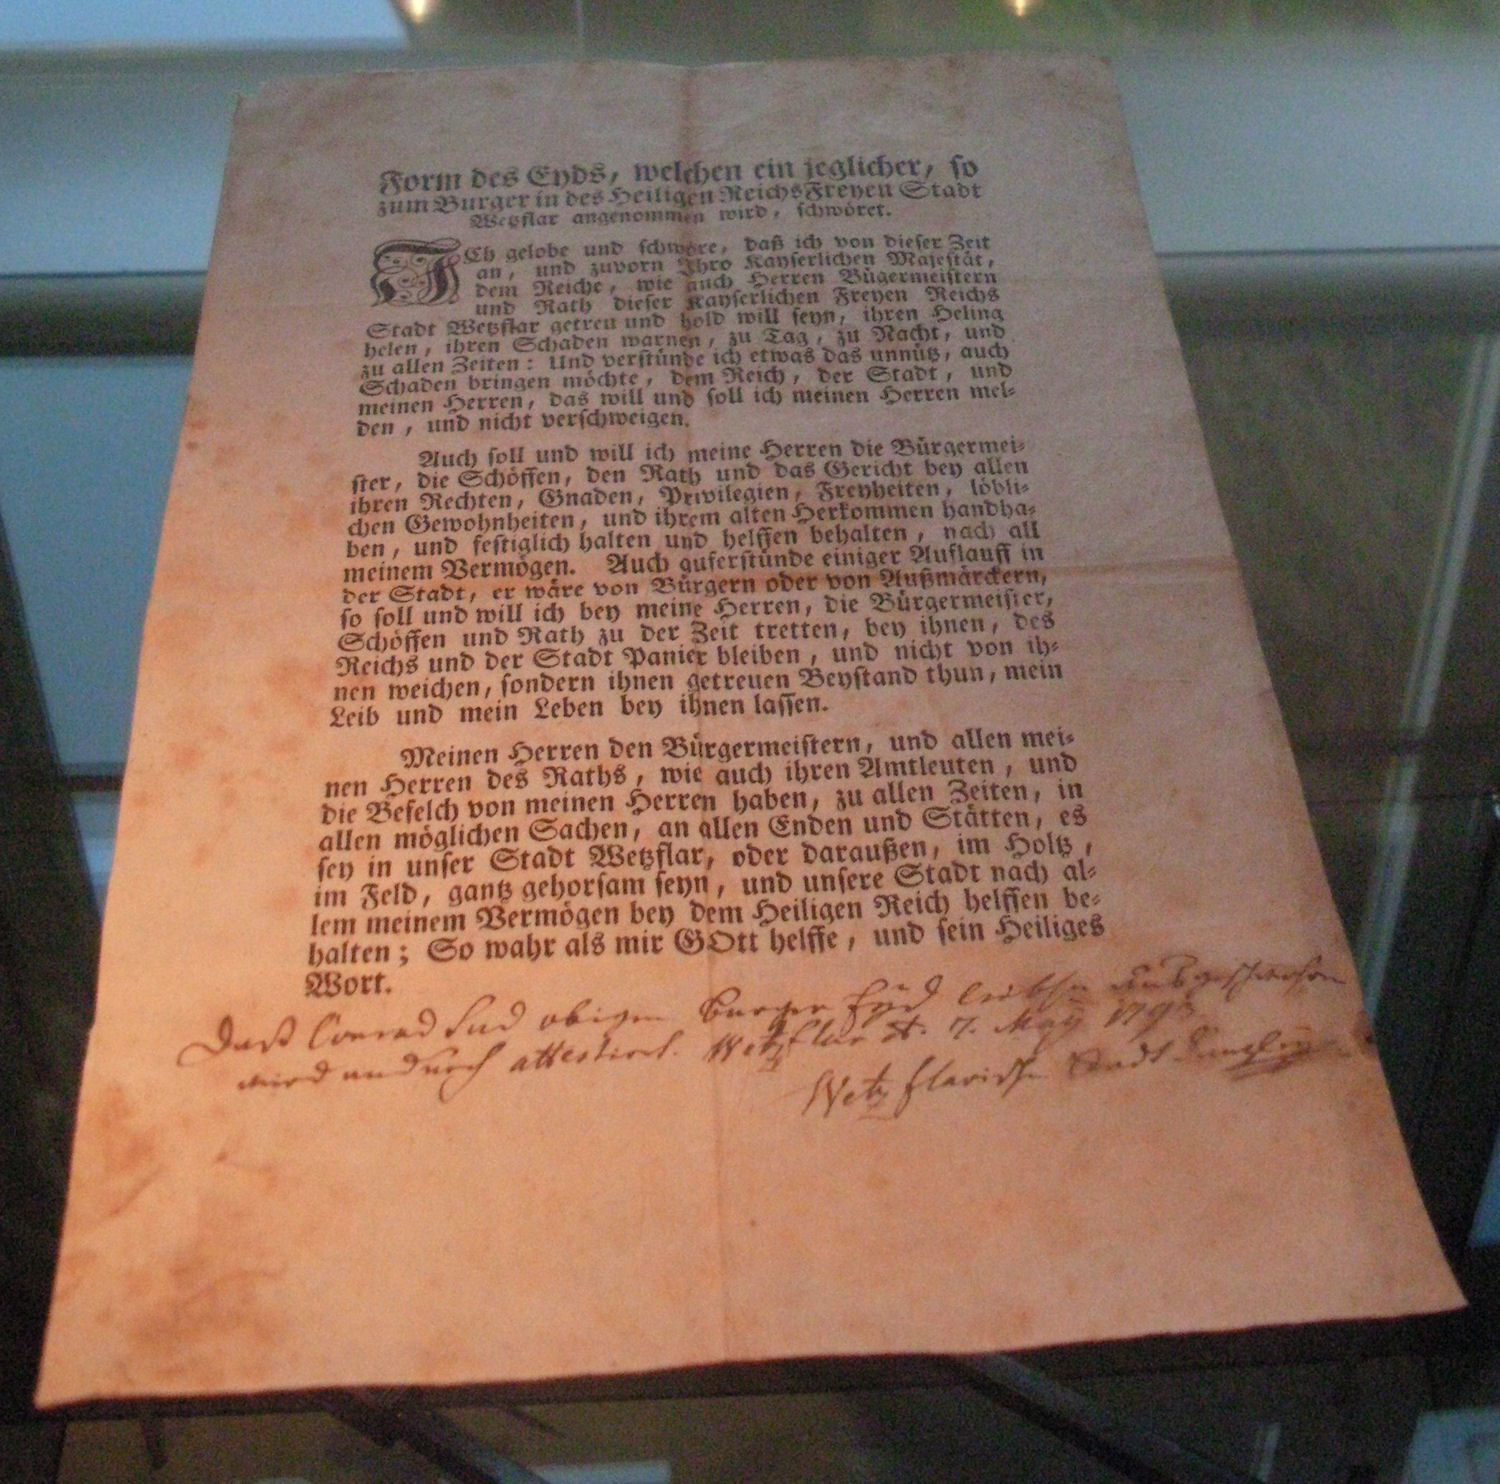 Form des Eyds, welchen ein jeglicher, so
zum Burger in des Heiligen ReichsFreyen Stadt
Wetzflar angenommen wird, schwöret.
ICh gelobe und schwöre, daß ich von dieser Zeit
an, und zuvorn Ihro Kayserlichen Majestät,
dem Reiche, wie auch Herren Bügermeistern
und Rath dieser Kayserlichen Freyen Reichs
Stadt Wetzflar getreu und hold will seyn, ihren Heling
helen, ihren Schaden warnen, zu Tag, zu Nacht, und
zu allen Zeiten: Und verstünde ich etwas das unnütz, auch
Schaden bringen möchte, dem Reich, der Stadt, und
meinen Herren, das will und soll ich meinen Herren mel-
den, und nicht verschweigen.
Auch soll und will ich meine Herren die Bürgermei-
ster, die Schöffen, den Rath und das Gericht bey allen
ihren Rechten, Gnaden, Privilegien, Freyheiten, löbli-
chen Gewohnheiten, und ihrem alten Herkommen handha-
ben, und festiglich halten und helffen behalten, nach all
meinem Vermögen. Auch auferstünde einiger Auflauff in
der Stadt, er wäre von Bürgern oder von Außmärckern,
so soll und will ich bey meine Herren, die Bürgermeister,
Schöffen und Rath zu der Zeit tretten, bey ihnen, des
Reichs und der Stadt Panier bleiben, und nicht von ih-
nen weichen, sondern ihnen getreuen Beystand thun, mein
Leib und mein Leben bey ihnen lassen.
Meinen Herren den Bürgermeistern, und allen mei-
nen Herren des Raths, wie auch ihren Amtleuten, und
die Befelch von meinen Herren haben, zu allen Zeiten, in
allen möglichen Sachen, an allen Enden und Stätten, es
sey in unser Stadt Wetzflar, oder daraußen, im Holtz,
im Feld, gantz gehorsam seyn, und unsere Stadt nach al-
lem meinem Vermögen bey dem Heiligen Reich helffen be-
halten; So wahr als mir GOtt helffe, und sein Heiliges
Wort.
Daß Conrad obigen Burger Eyd ausgeschworen
wird andurch attestirt. Wetzflar d. 7. May
Wetzflarische Stadt Cantzley